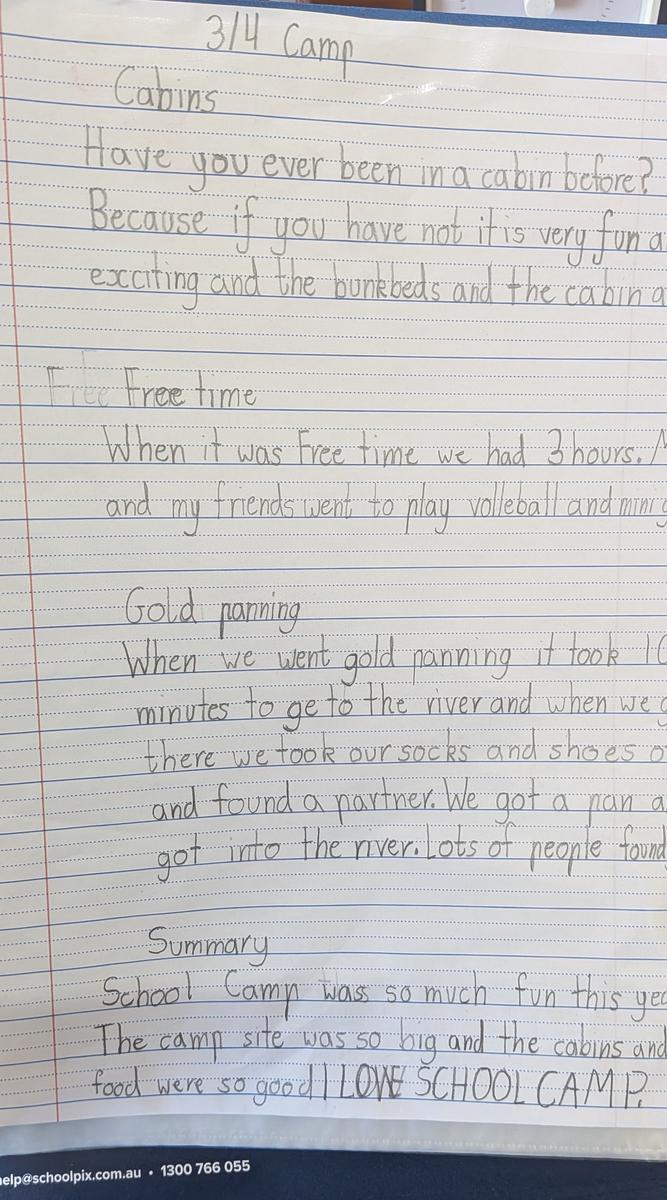 3/4 Camp
Cabins
Have you ever been in a cabin before?
Because if you have not it is very fun a
exciting and the bunkbeds and the cabin a
Free Free time
When it was Free time we had 3 hours.
and my friends went to play volleball and mini g
Gold panning
When we went gold panning it took 10
minutes to ge to the river and when we g
there we took our socks and shoes o
and found a partner. We got a pan a
got into the river. Lots of people found
Summary
School Camp was so much fun this yea
The camp site was so big and the cabins and
food were so good I LOVE SCHOOL CAMP.
elp@schoolpix.com.au • 1300 766 055